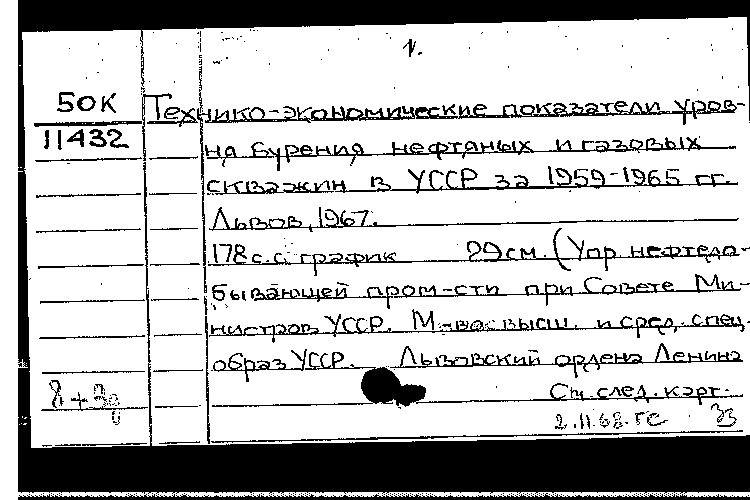 1.
50К Технико-экономические показатели уров-
11432 ня бурения нефтяных и газовых
скважин в УССР за 1959-1965 гг.
Львов, 1967.
178 с. с график 29см. (Упр. нефтедо-
бывающей пром-сти при Совете Ми-
нистров УССР. М-во высш. и сред. спец.
образ УССР. Львовский ордена Ленина
См. след. карт.
2.11.68. гс 33